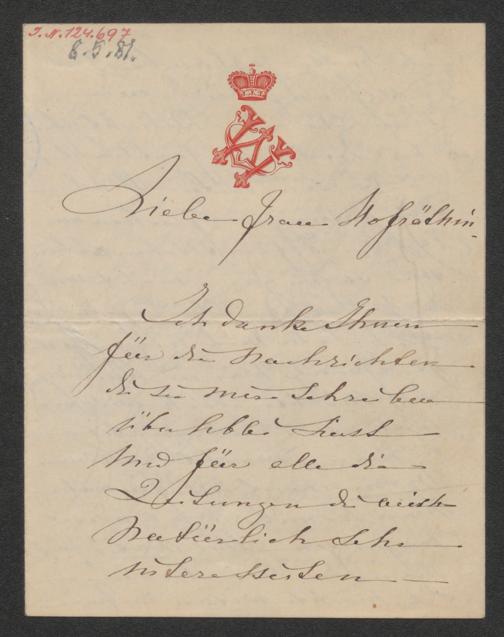 I.N. 124.697
8.5.81.
Liebe Frau Hofräthin.
Ich danke Ihnen
für die Nachrichten
die sie mir schreiben
über Abbé Liszt
und für alle die
Zeitungen die mich
natürlich sehr
interessirten